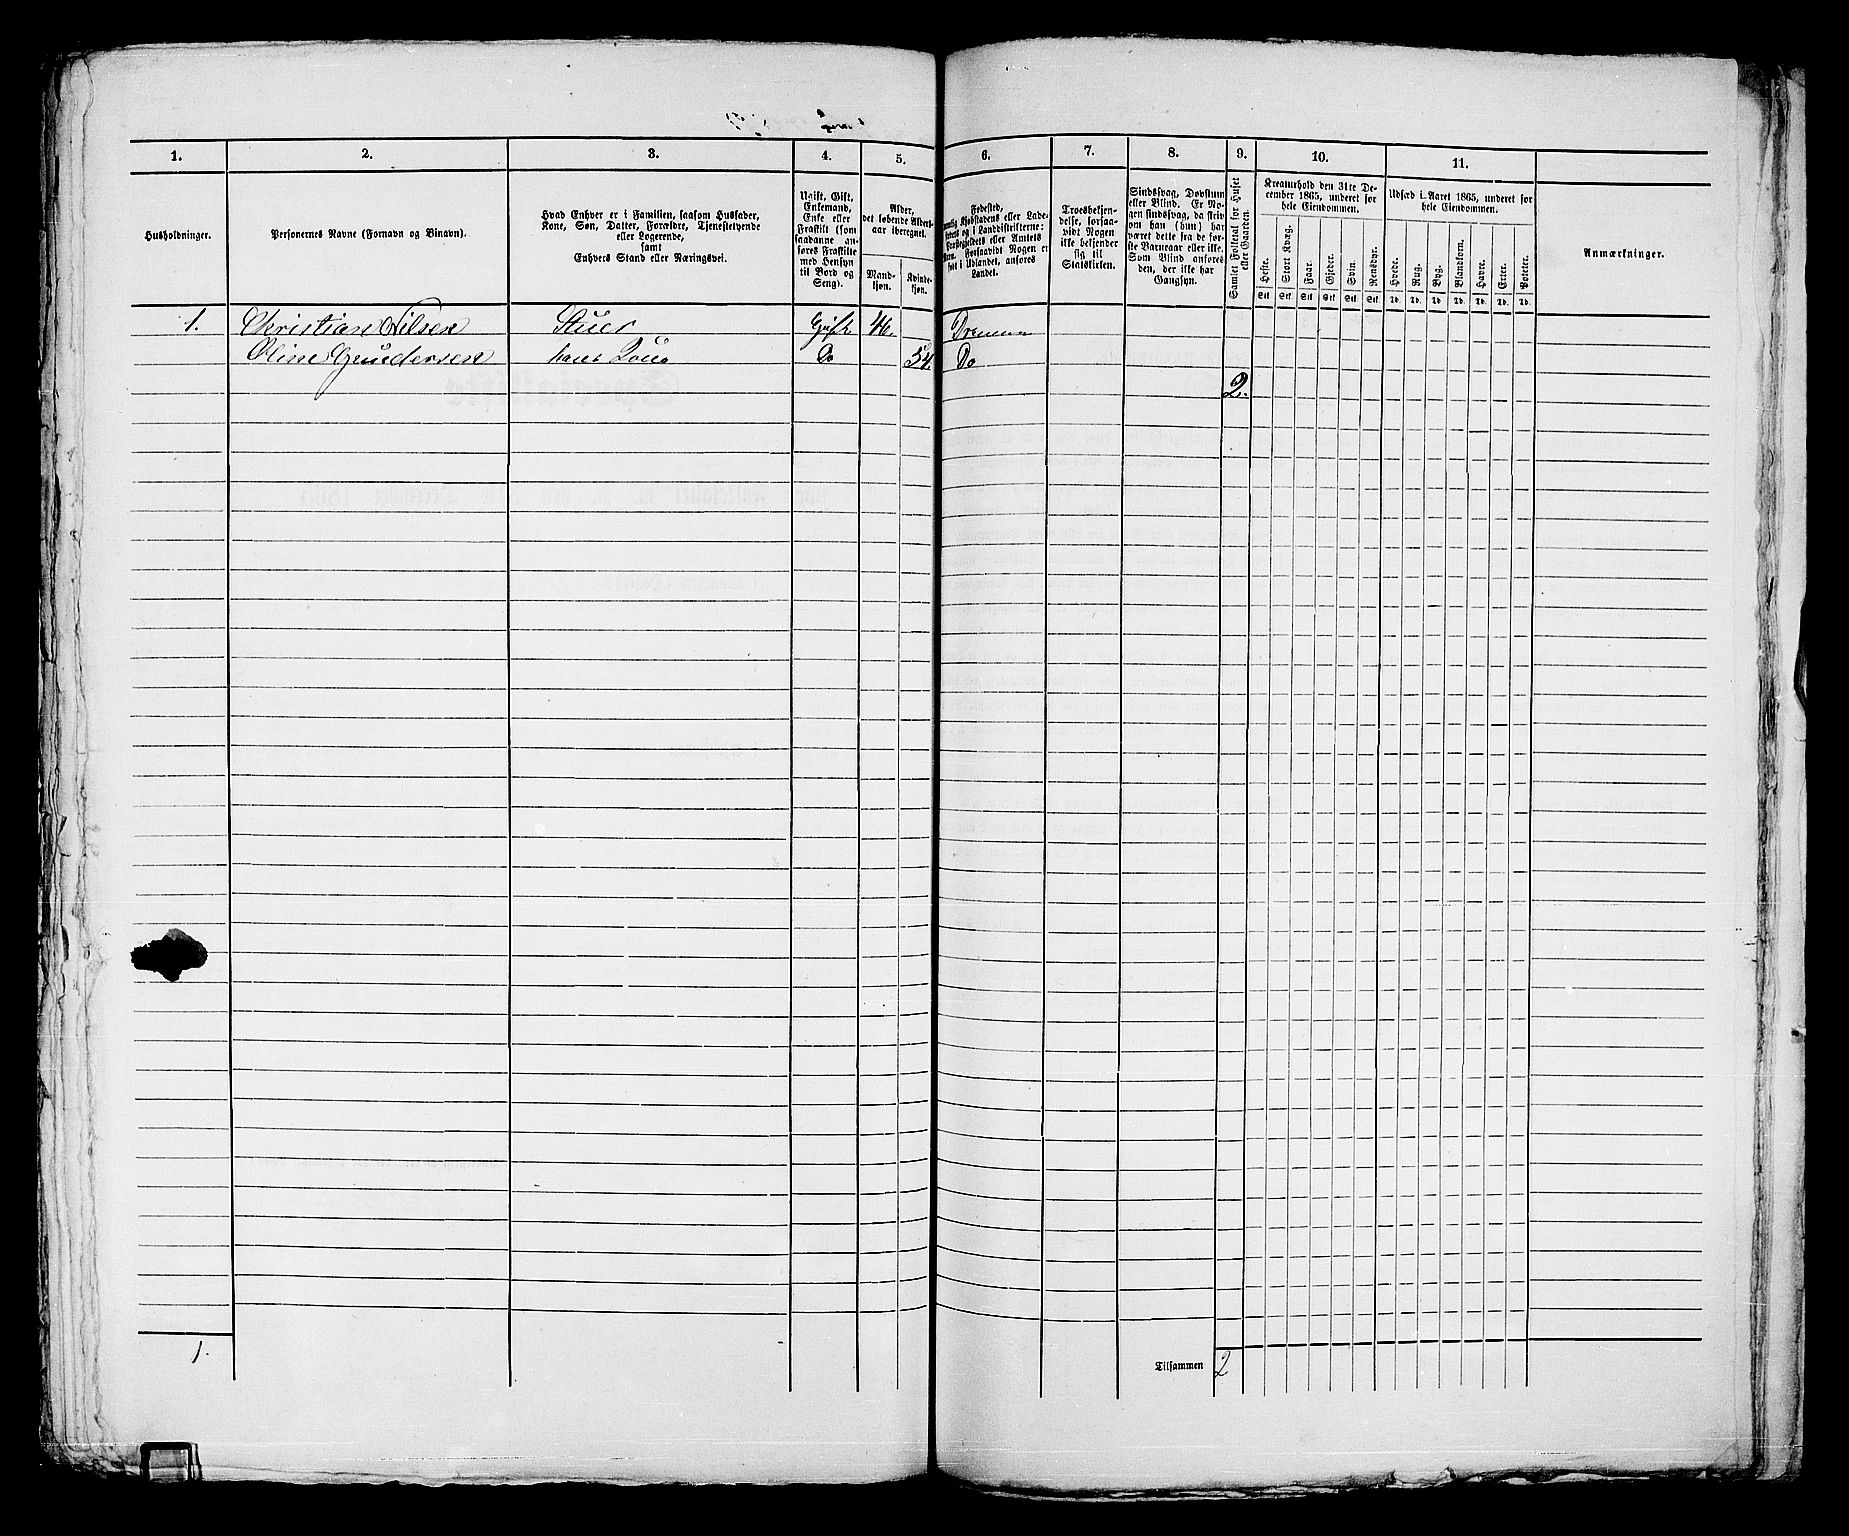 1.
2.
3.
4.
5.
6.
7.
8.
9.
10.
11.
Husholdninger.
Personernes Navne (Fornavn og Binavn).
Hvad Enhver er i Familien, saasom Husfader,
Kone, Søn, Datter, Forældre, Tjenestetyende
eller Logerende,
samt
Enhvers Stand eller Næringsvei.
Ugift, Gift,
Enkemand,
Enke eller
Fraskilt (som
saadanne an-
føres Fraskilte
med Hensyn
til Bord og
Seng).
Alder,
det løbende Alders-
aar iberegnet.
Mand-
kjøn.
Kvinde-
kjøn.
Fødested,
Kjøbstadens eller Lade-
stedets og i Landdistrikterne:
Præstegjeldets eller Amtets
Navn. Forsaavidt Nogen er
født i Udlandet, anføres
Landet.
Troesbekjen-
delse, forsaa-
vidt Nogen
ikke bekjender
sig til
Statskirken.
Sindssvag, Døvstum
eller Blind. Er No-
gen sindssvag, da skriv
om han (hun) har
været dette fra de før-
ste Barneaar eller ikke.
Som Blind anføres
den, der ikke har
Gangsyn.
Samlet Folketal for Huset
eller Gaarden.
Kreaturhold den 31te De-
cember 1865, underet for
hele Eiendommen.
Heste.
Stort Kvæg.
Faar.
Gjeder.
Svin.
Rensdyr.
Stk Stk Stk Stk Stk Stk
Udsæd i Aaret 1865, underet for
hele Eiendommen.
Hvede.
Rug.
Byg.
Blandkorn.
Havre.
Erter.
Poteter.
Td. Td. Td. Td. Td. Td. Td.
Anmærkninger.
1. Christian Nilsen Stuer Gift 46. Drammen
Oline Gundersen hans Kone Do 54. Do
2.
1.
Tilsammen 2